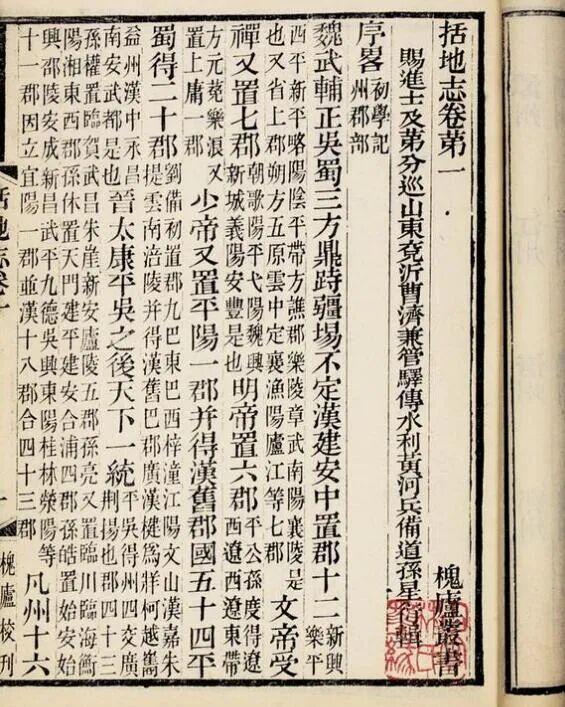 括地志卷第一 槐廬叢書
賜進士及第分巡山東兗沂曹濟兼管驛傳水利黃河兵備道孫星衍輯
序畧 初學記州郡部
魏武輔正吳蜀三方鼎跱疆埸不定漢建安中置郡十二 新興樂平
西平新平略陽陰平帶方譙郡樂陵章武南陽襄陵是也又省上郡朔方五原雲中定襄漁陽廬江等七郡 文帝受
禪又置七郡 朝歌陽平弋陽魏興新城義陽安豐是也 明帝置六郡 平公孫度得遼西遼西遼東帶
方元菟樂浪又置上庸一郡 少帝又置平陽一郡并得漢舊郡國五十四平
蜀得二十郡 劉備初置郡九巴東巴西梓潼江陽文山漢嘉朱提雲南涪陵并得漢舊巴郡廣漢犍爲牂柯越巂
益州漢中永昌南安武都是也 晉太康平吳之後天下一統 平吳得州四交廣荆揚也郡四十三
孫權置臨賀武昌朱崖新安廬陵五郡孫亮又置臨川臨海衡陽湘東西郡孫休置天門建平建安合浦四郡孫皓置始安始
興邵陵安成新昌武平九德吳興東陽桂林滎陽等十一郡因立宜陽一郡並漢十八郡合四十三郡 凡州十六
括地志卷一 一 槐廬校刊